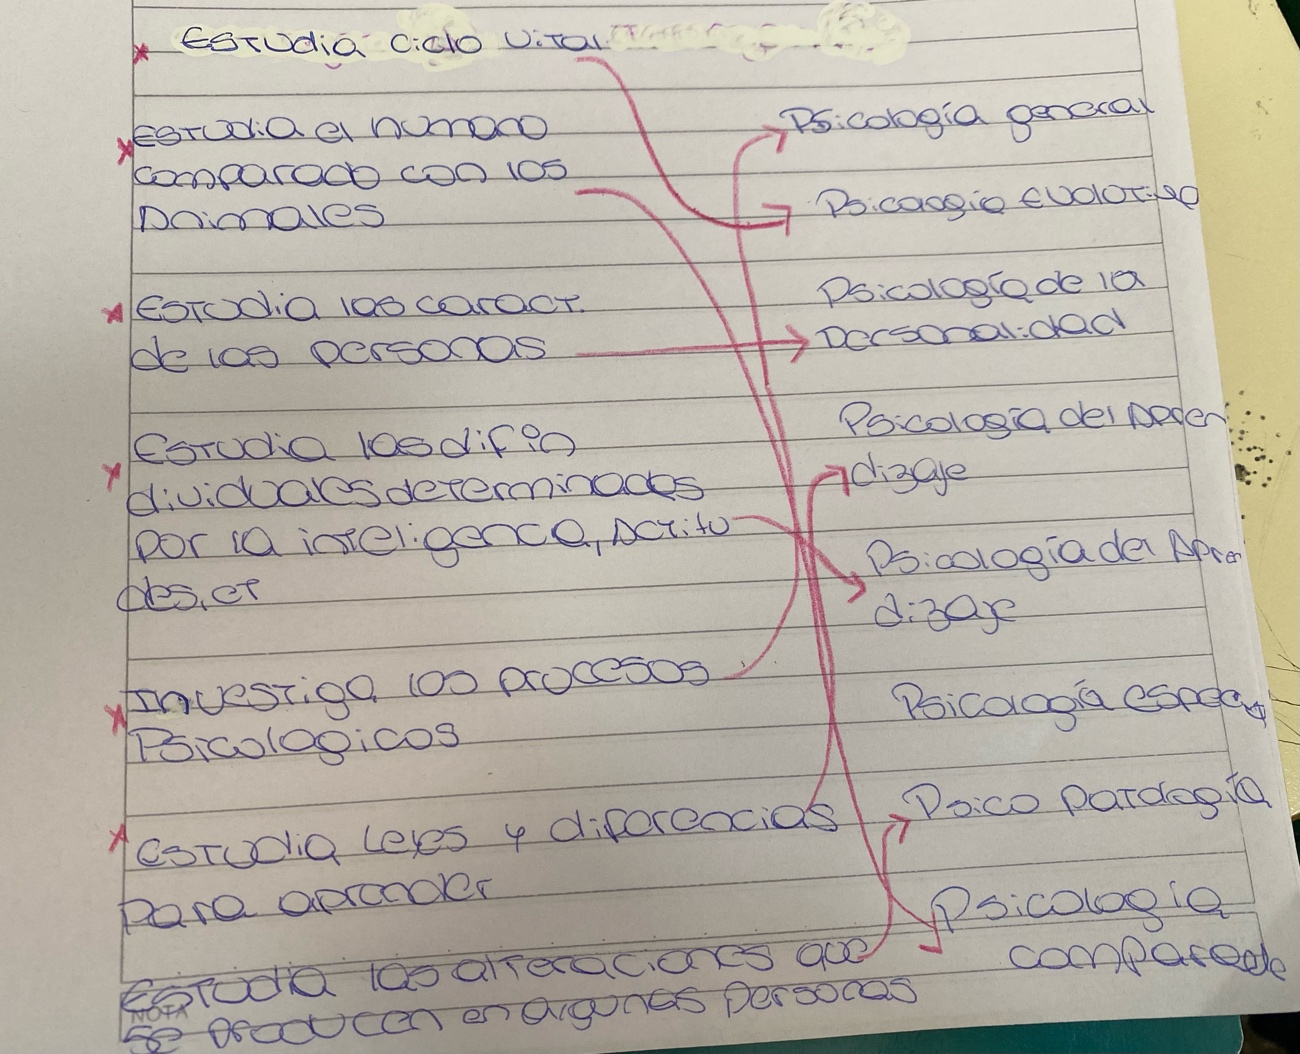 Estudia ciclo vital
Estudia el humano
comparado con los
Animales
Estudia las caract.
de las personas
Estudia las dif in
dividuales determinadas
por la inteligencia, Actitu
des, et
Investiga los procesos
Psicologicos
Estudia leyes y diferencias
para aprender
Estudia las alteraciones que
se producen en algunas personas
NOTA
Psicología general
Psicología
Psicología de la
Personalidad
Psicología del Apren
dizaje
Psicología del Apren
dizaje
Psicología
Psico patología
Psicología
comparada